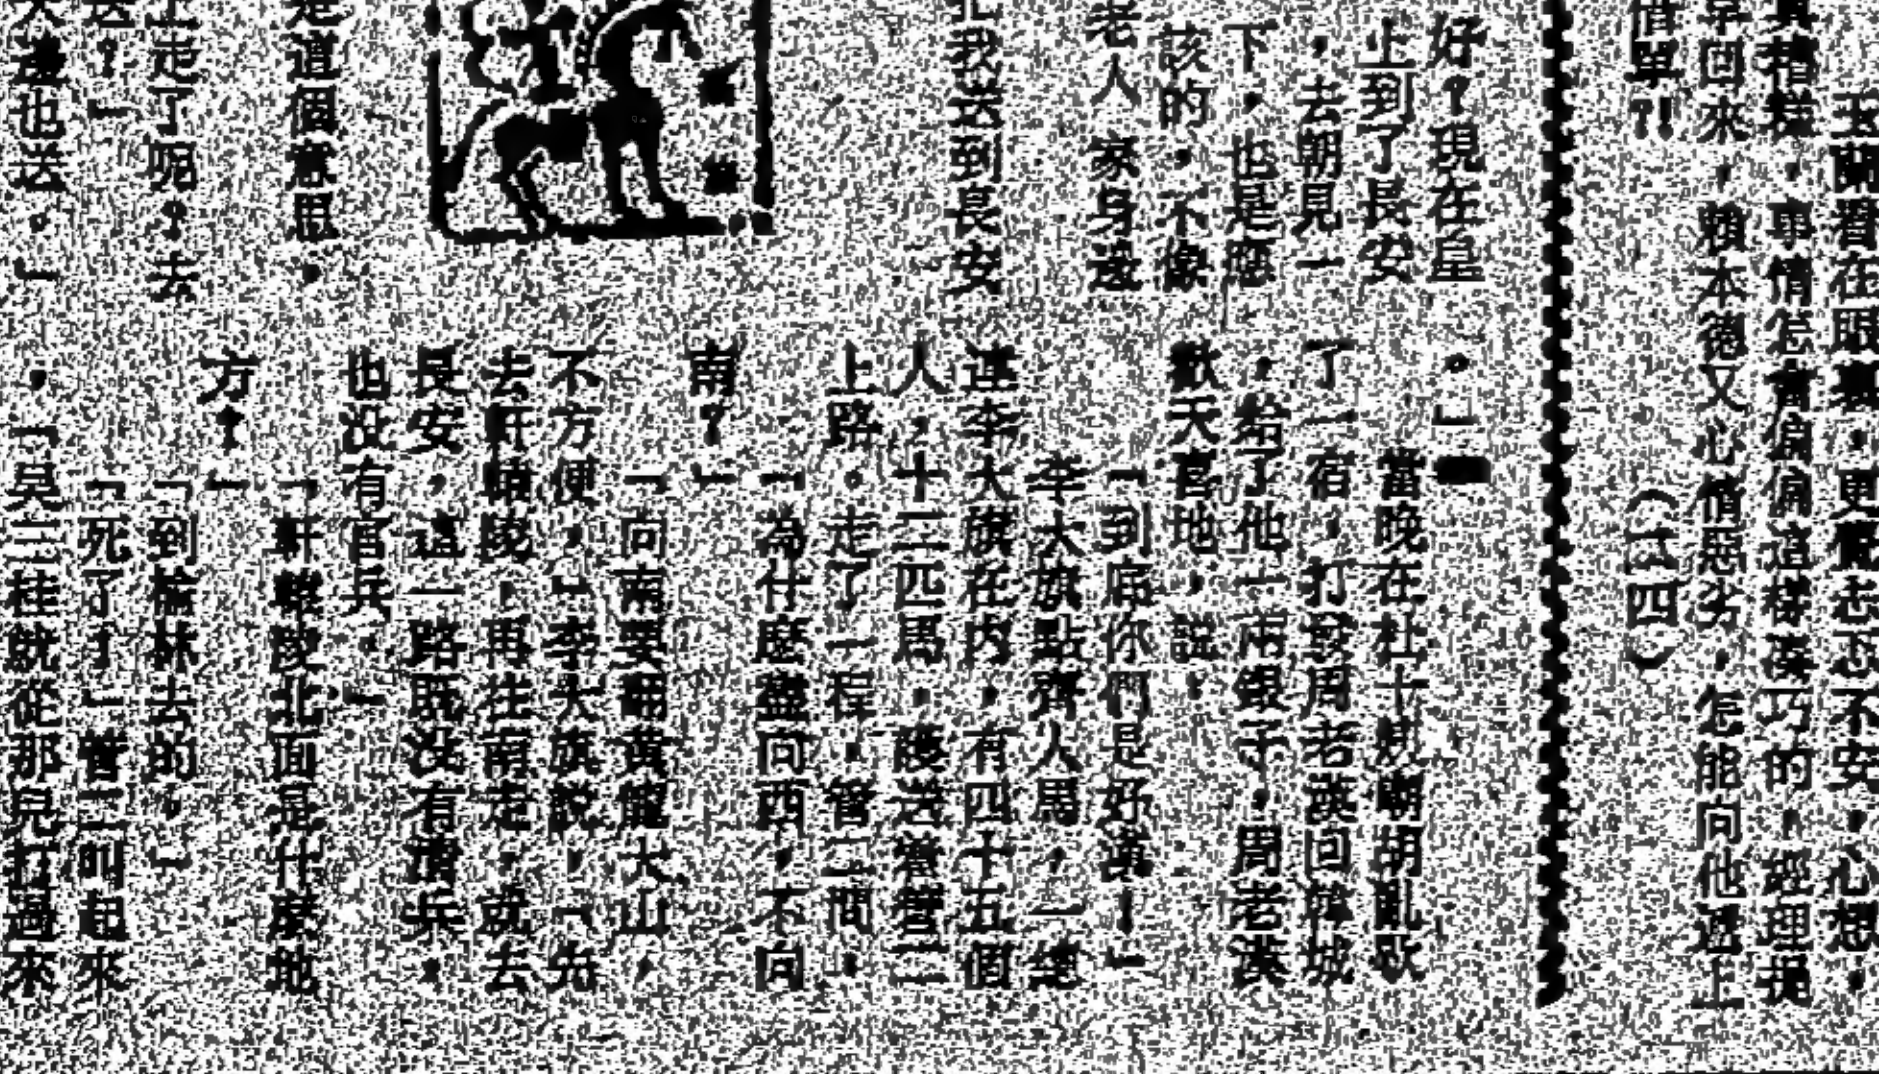 玉蘭看在眼裏，更覺志忑不安，心想，
真糟糕，事情怎會偏偏這樣湊巧的，經理提
早回來，賴本德又心情惡劣，怎能向他遞上
借單？！
（六四）
好？現在皇
上到了長安
，去朝見一
下，也是應
該的，不像
老人家身邊
七我送到長安
是這個意思，
上走了呢？去
？」
大邊也去。」
。」
當晚在杜十娘廟胡亂歇
了一宿，打發周老漢回韓城
，給了他一兩銀子，周老漢
歡天喜地，說：
「到底你們是好漢！」
李大旗點齊人馬，一總
連李大旗在内，有四十五個
人，十二匹馬，護送管管二
上路。走了一程，管二問：
「為什麽盡向西，不向
南？」
「向南要翻黃龍大山，
不方便，」李大旗說，「先
去軒轅陵，再往南走，就去
長安，這一路既没有壞兵，
也没有官兵。」
「軒轅陵北面是什麽地
方？」
「到榆林去的。」
「死了！」管二叫起來
，「吳三桂就從那兒打過來